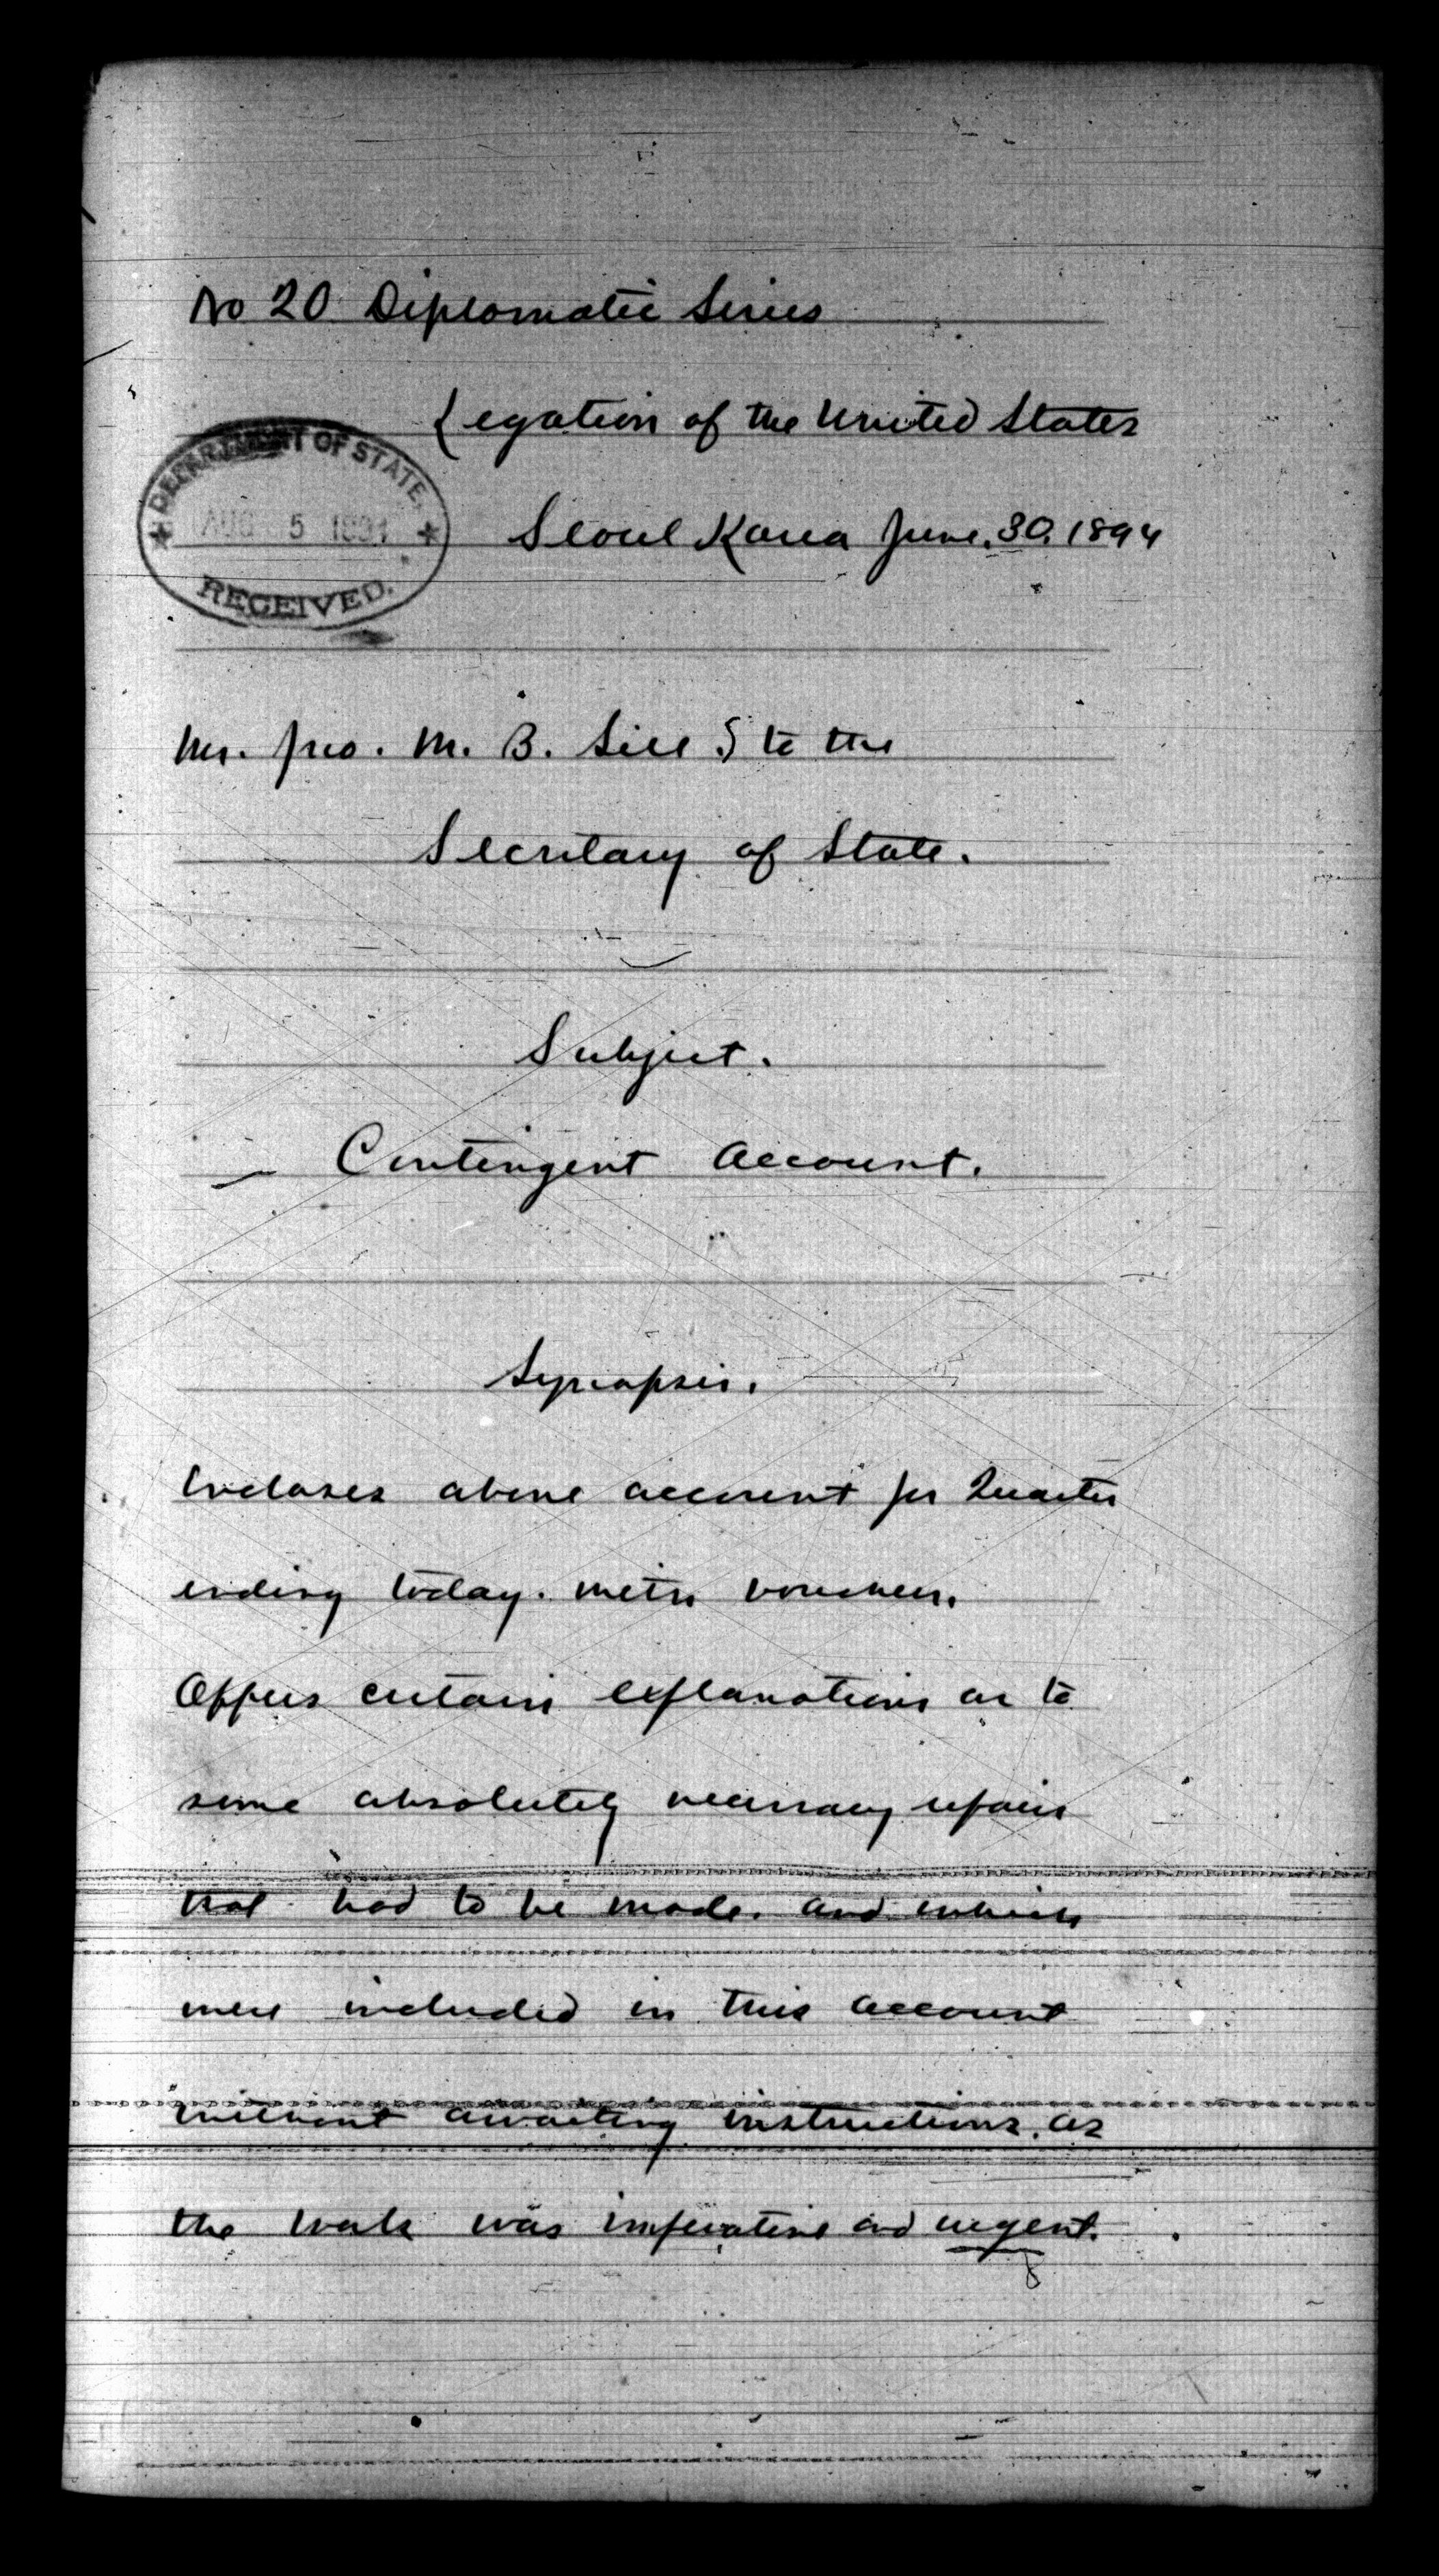 No 20 Diplomatic Series
Legation of the United States
DEPARTMENT OF STATE.
AUG 5 1894
RECEIVED.
Seoul Korea June. 30. 1894
Mr. Jno. M. B. Sill to the
Secretary of State.
Subject.
Contingent Account.
Synopsis.
Incloses above account for Quarter
ending today. with vouchers.
Offers certain explanations as to
some absolutely necessary repairs
that had to be made. and which
were included in this account
without awaiting instructions. as
the work was imperative and urgent.